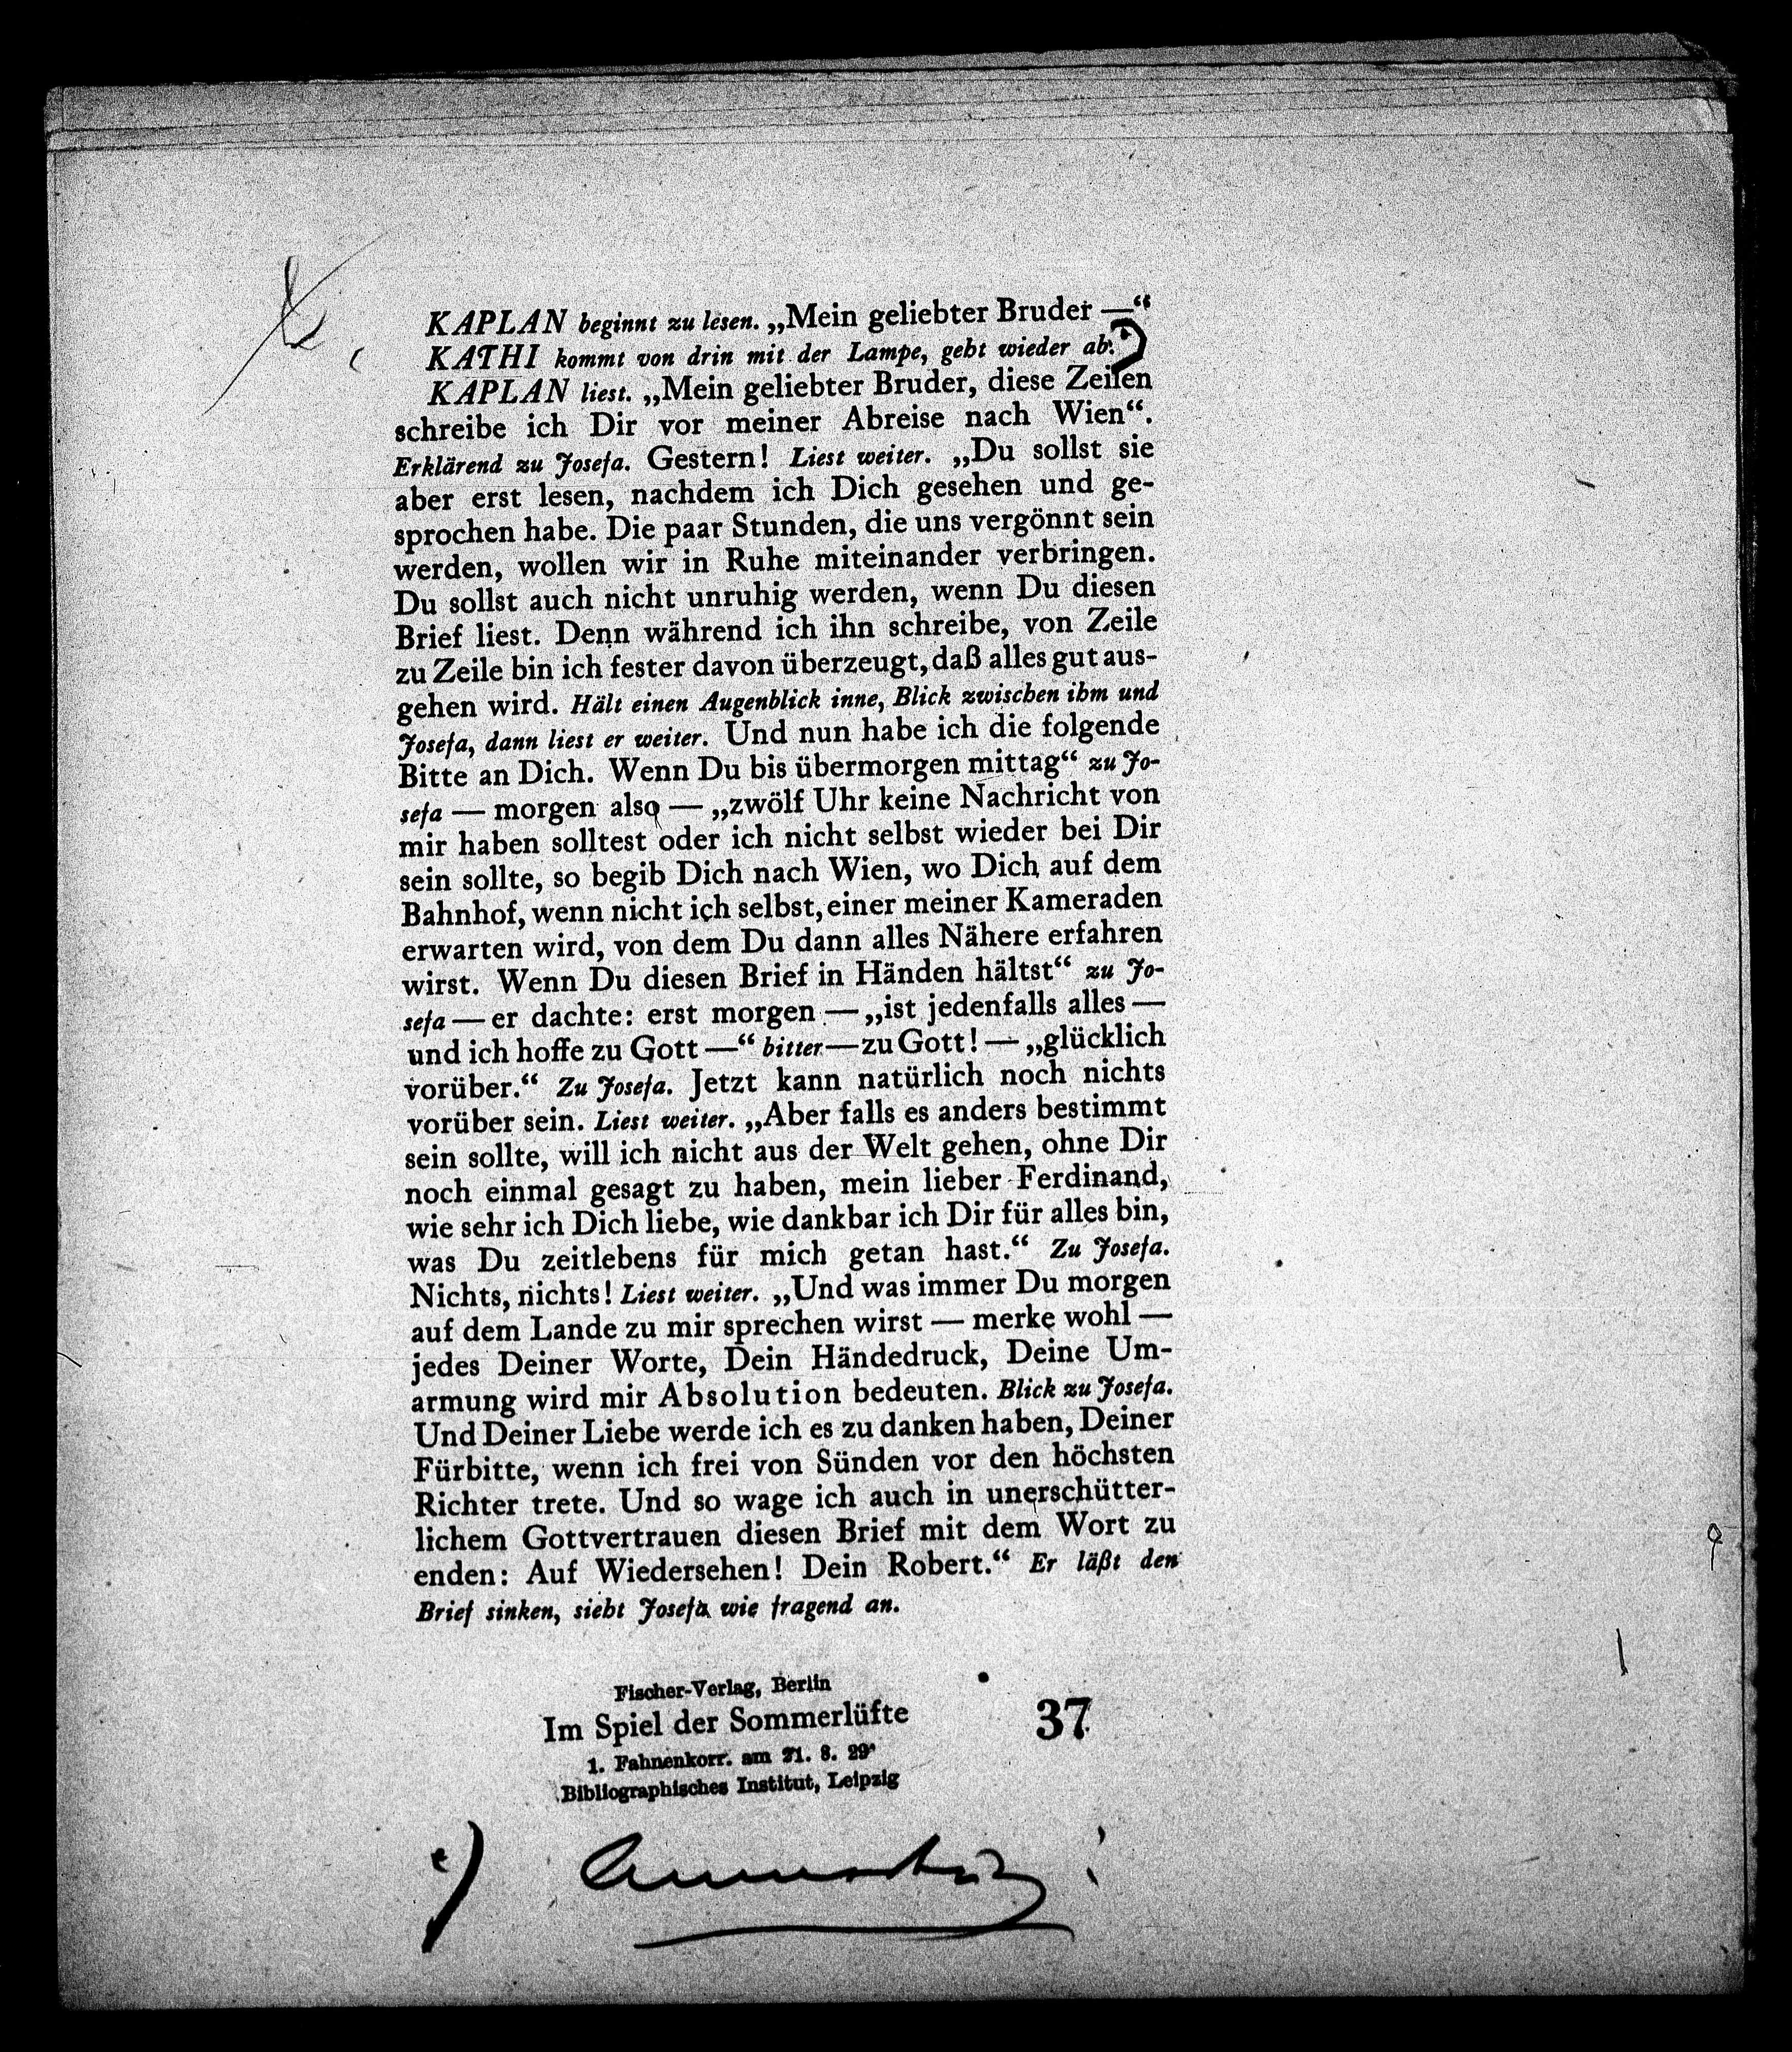 KAPLAN beginnt zu lesen. „Mein geliebter Bruder —“
KATHI kommt von drin mit der Lampe, geht wieder ab.
KAPLAN liest. „Mein geliebter Bruder, diese Zeilen
schreibe ich Dir vor meiner Abreise nach Wien“.
Erklärend zu Josefa. Gestern! Liest weiter. „Du sollst sie
aber erst lesen, nachdem ich Dich gesehen und ge-
sprochen habe. Die paar Stunden, die uns vergönnt sein
werden, wollen wir in Ruhe miteinander verbringen.
Du sollst auch nicht unruhig werden, wenn Du diesen
Brief liest. Denn während ich ihn schreibe, von Zeile
zu Zeile bin ich fester davon überzeugt, daß alles gut aus-
gehen wird. Hält einen Augenblick inne, Blick zwischen ihm und
Josefa, dann liest er weiter. Und nun habe ich die folgende
Bitte an Dich. Wenn Du bis übermorgen mittag“ zu Jo-
sefa — morgen also — „zwölf Uhr keine Nachricht von
mir haben solltest oder ich nicht selbst wieder bei Dir
sein sollte, so begib Dich nach Wien, wo Dich auf dem
Bahnhof, wenn nicht ich selbst, einer meiner Kameraden
erwarten wird, von dem Du dann alles Nähere erfahren
wirst. Wenn Du diesen Brief in Händen hältst“ zu Jo-
sefa — er dachte: erst morgen — „ist jedenfalls alles —
und ich hoffe zu Gott —“ bitter — zu Gott! — „glücklich
vorüber.“ Zu Josefa. Jetzt kann natürlich noch nichts
vorüber sein. Liest weiter. „Aber falls es anders bestimmt
sein sollte, will ich nicht aus der Welt gehen, ohne Dir
noch einmal gesagt zu haben, mein lieber Ferdinand,
wie sehr ich Dich liebe, wie dankbar ich Dir für alles bin,
was Du zeitlebens für mich getan hast.“ Zu Josefa.
Nichts, nichts! Liest weiter. „Und was immer Du morgen
auf dem Lande zu mir sprechen wirst — merke wohl —
jedes Deiner Worte, Dein Händedruck, Deine Um-
armung wird mir Absolution bedeuten. Blick zu Josefa.
Und Deiner Liebe werde ich es zu danken haben, Deiner
Fürbitte, wenn ich frei von Sünden vor den höchsten
Richter trete. Und so wage ich auch in unerschütter-
lichem Gottvertrauen diesen Brief mit dem Wort zu
enden: Auf Wiedersehen! Dein Robert.“ Er läßt den
Brief sinken, sieht Josefa wie fragend an.
Fischer-Verlag, Berlin
Im Spiel der Sommerlüfte
37
1. Fahnenkorr. am 21. 8. 29
Bibliographisches Institut, Leipzig